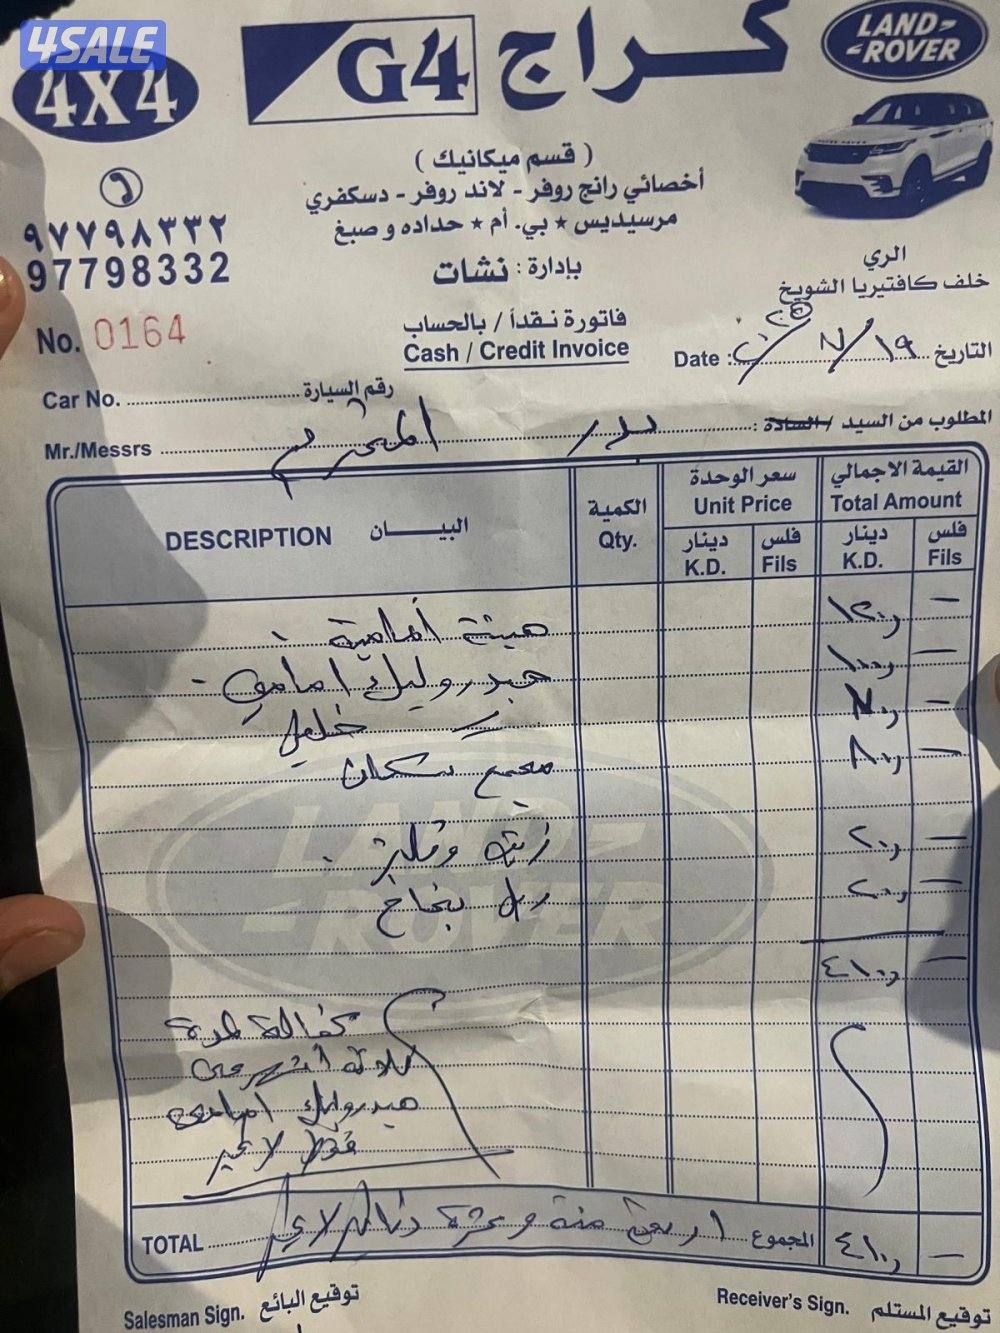 4SALE
4X4
G4 كراج
LAND ROVER
( قسم ميكانيك )
أخصائي رانج روفر - لاند روفر - دسكفري
مرسيديس * بي. أم * حداده و صبغ
٩٧٧٩٨٣٣٢
97798332
بإدارة : نشات
الري
خلف كافتيريا الشويخ
No. 0164
فاتورة نقداً / بالحساب
Cash / Credit Invoice
Date : ١٩/٧/٢٥ التاريخ
Car No. رقم السيارة
Mr./Messrs بدر المحترم المطلوب من السيد / السادة :
DESCRIPTION البيان
الكمية Qty.
سعر الوحدة Unit Price
القيمة الاجمالي Total Amount
دينار K.D. فلس Fils
دينار K.D. فلس Fils
هيئة أمامية ١٢٠, —
هيدروليك امامي ١٠٠, —
= خلفي ٧٠, —
مجمع سكان ٨٠, —
زيت وفلتر ٢٠, —
ريل بخاخ ٢٠, —
٤١٠, —
كفالة لمدة
ثلاثة أشهر على
هيدروليك امامي
فقط لا غير
TOTAL اربعمئة وعشرة دنانير لاغير المجموع ٤١٠, —
Salesman Sign. توقيع البائع
Receiver's Sign. توقيع المستلم
LAND ROVER